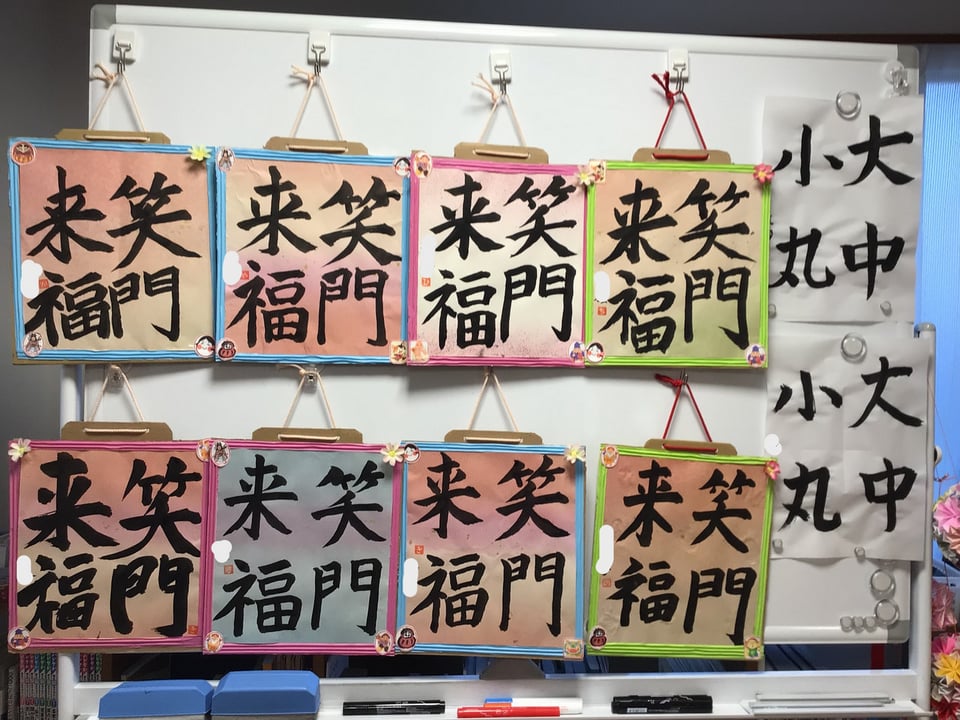 笑門
来福
笑門
来福
笑門
来福
笑門
来福
大中
小丸
笑門
来福
笑門
来福
笑門
来福
笑門
来福
大中
小丸